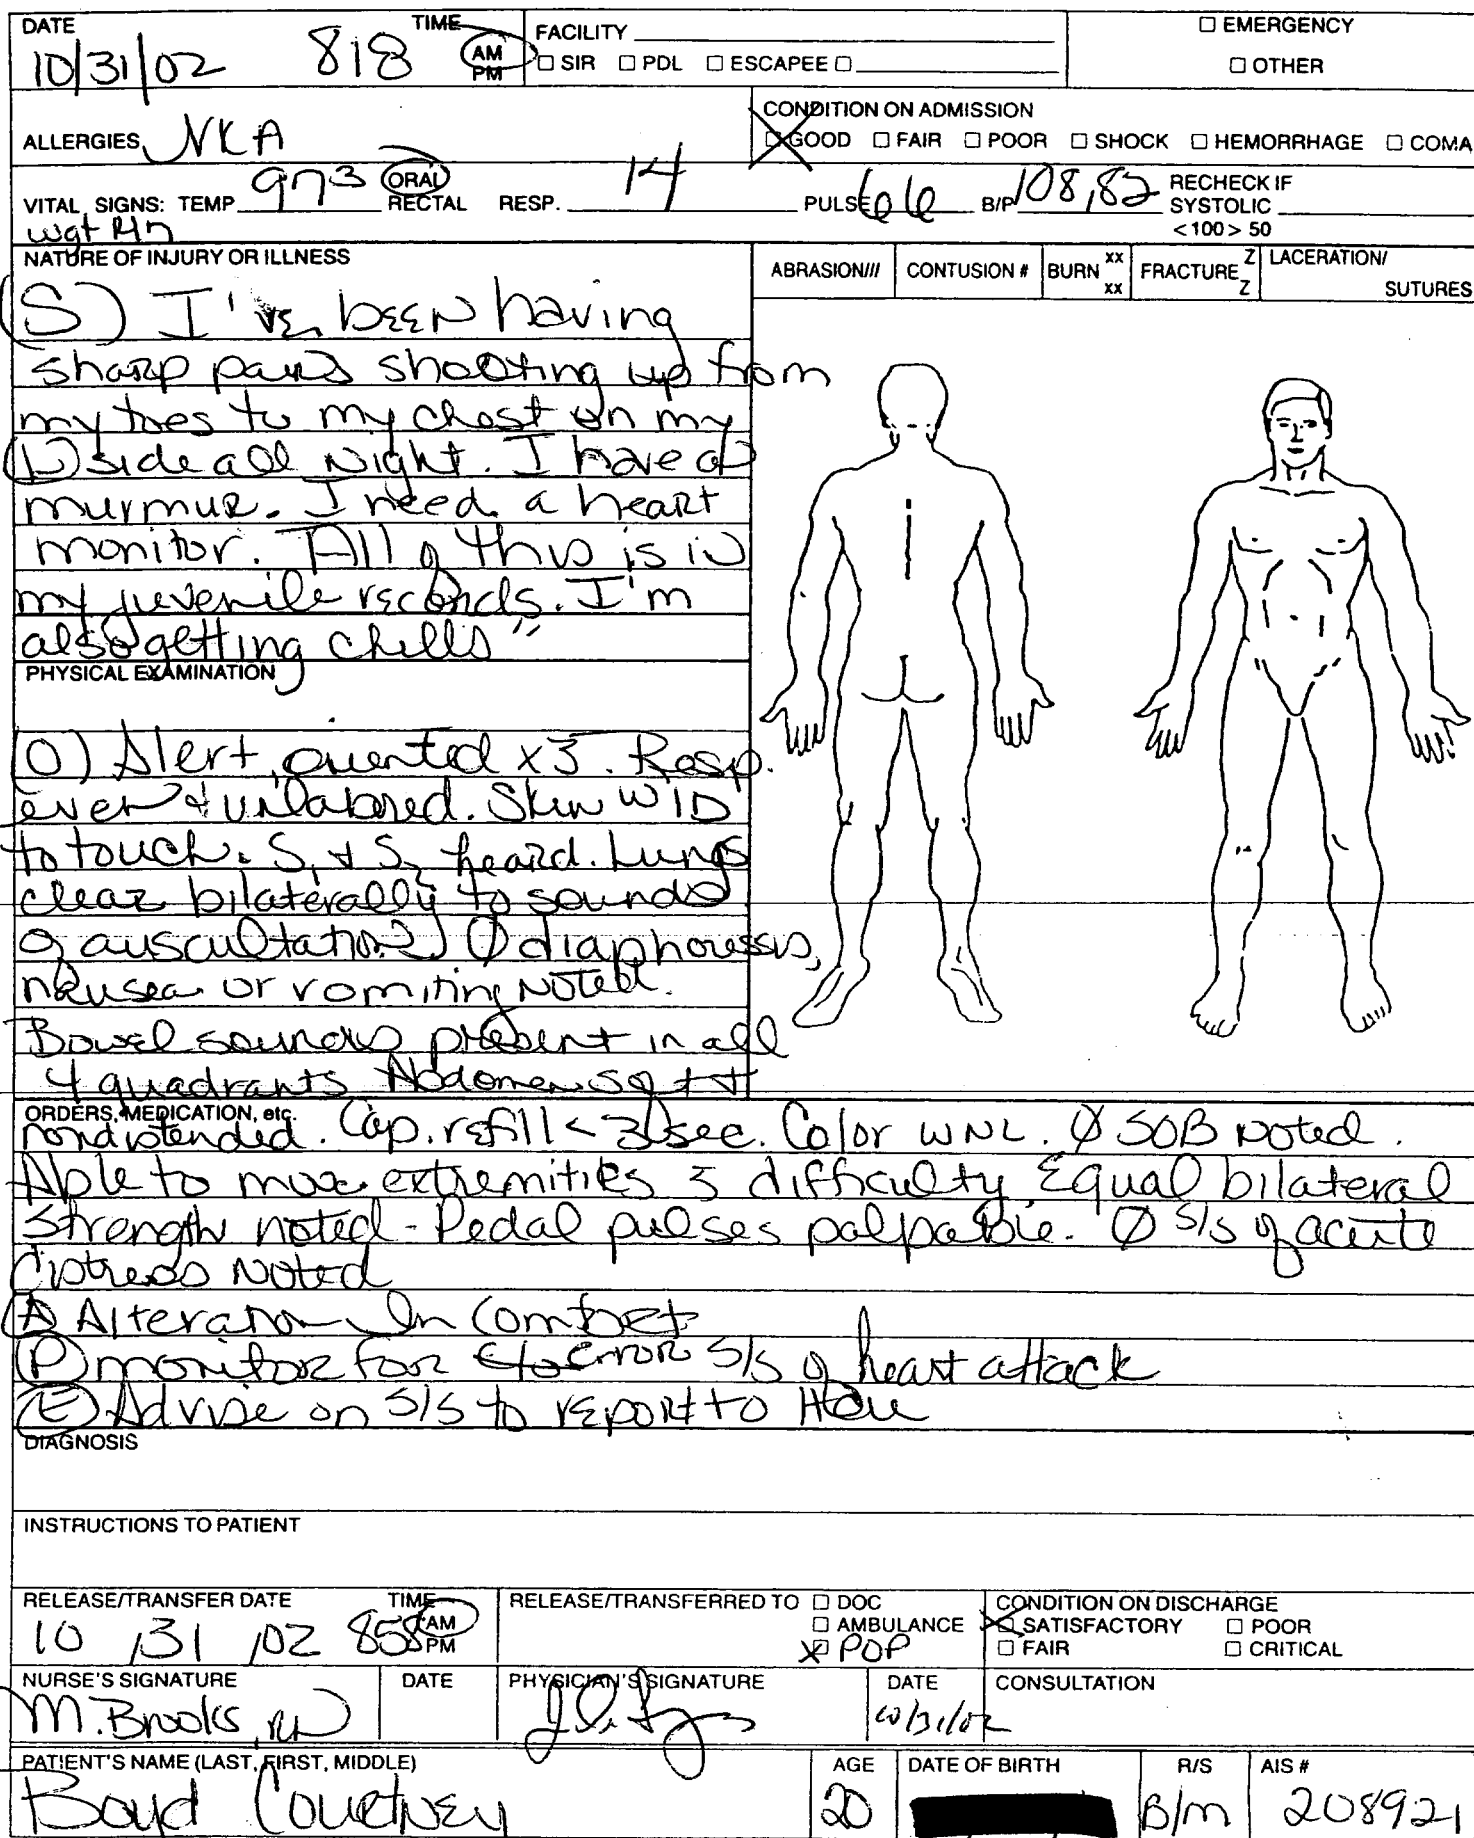 DATE TIME FACILITY ☐ EMERGENCY
10/31/02 818 AM PM ☐ SIR ☐ PDL ☐ ESCAPEE ☐ ☐ OTHER
ALLERGIES NKA CONDITION ON ADMISSION
☐ GOOD ☐ FAIR ☐ POOR ☐ SHOCK ☐ HEMORRHAGE ☐ COMA
VITAL SIGNS: TEMP 97³ ORAL RECTAL RESP. 14 PULSE 66 B/P 108,82 RECHECK IF SYSTOLIC <100> 50
wgt
NATURE OF INJURY OR ILLNESS
ABRASION/// CONTUSION # BURN xx xx FRACTURE Z Z LACERATION/ SUTURES
(S) I've been having
sharp pains shooting up from
my toes to my chest on my
(L) side all night. I have a
murmur. I need a heart
monitor. All of this is in
my juvenile records. I'm
also getting chills"
PHYSICAL EXAMINATION
(O) Alert, oriented x3. Resp.
even & unlabored. Skin W/D
to touch. S₁ & S₂ heard. Lungs
clear bilaterally to sounds
of auscultation. Ø diaphoresis,
nausea or vomiting noted.
Bowel sounds present in all
4 quadrants Abdomen soft +
ORDERS, MEDICATION, etc.
nondistended. Cap. refill < 3 sec. Color WNL. Ø SOB noted.
Able to move extremities s̄ difficulty Equal bilateral
strength noted - Pedal pulses palpable. Ø s/s of acute
distress noted
(A) Alteration In Comfort
(P) monitor for error s/s of heart attack
(E) Advise on s/s to report to HCU
DIAGNOSIS
INSTRUCTIONS TO PATIENT
RELEASE/TRANSFER DATE TIME RELEASE/TRANSFERRED TO ☐ DOC CONDITION ON DISCHARGE
10 /31 /02 858 AM PM ☐ AMBULANCE ☐ SATISFACTORY ☐ POOR
☒ POP ☐ FAIR ☐ CRITICAL
NURSE'S SIGNATURE DATE PHYSICIAN'S SIGNATURE DATE CONSULTATION
M. Brooks, RN 10/31/02
PATIENT'S NAME (LAST, FIRST, MIDDLE) AGE DATE OF BIRTH R/S AIS #
Boyd Courtney 20 B/m 208921